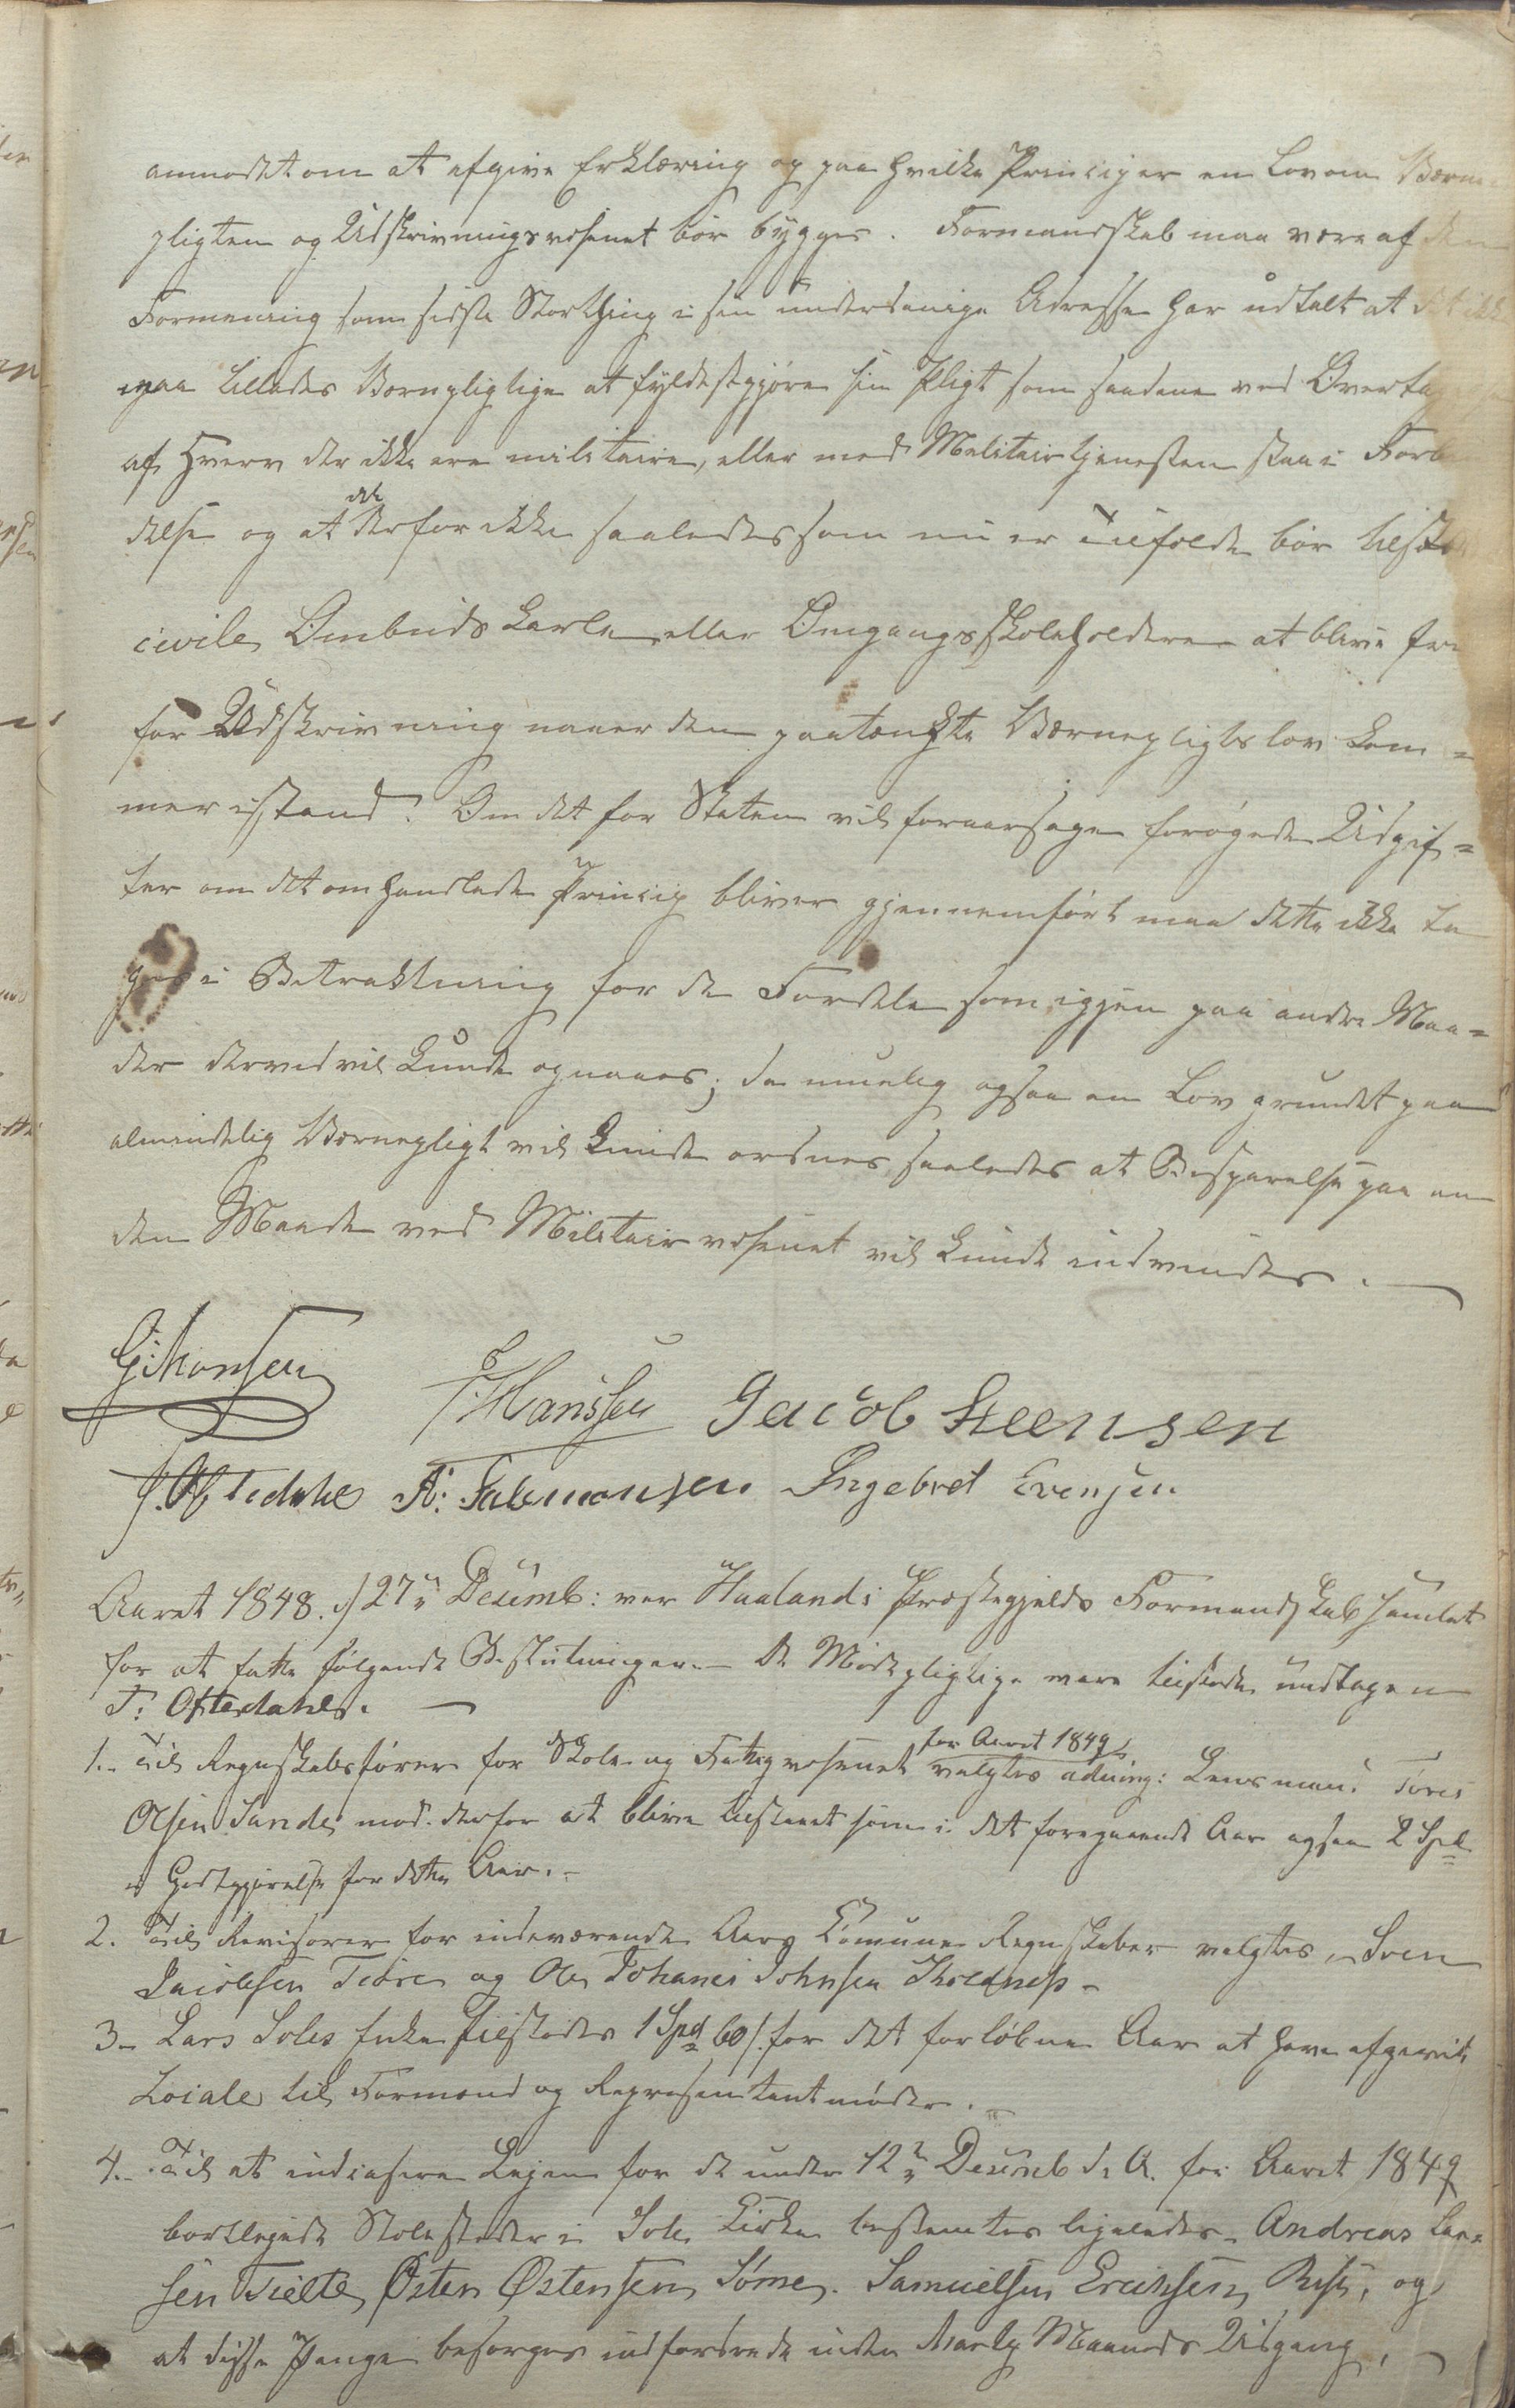 anmodet om at afgive Erklæring og paa hvilke Principer en Lov om Værne-
pligten og Udskrivningsvæsenet bør bygges. Formandskab maa være af den
Formening som sidste Storthing i sin underdanige Adresse har udtalt at det ikke
maa tillades Værnepligtige at fyldestgjøre sin Pligt som saadanne ved Overta
af Hverv der ikke ere militaire, eller med Militairtjenesten staa i Forbin
delse og at det derfor ikke saaledes som nu er Tilfældet bør tilstaaes
civile Ombuds Karle eller Omgangsskoleholdere at blive fri
for Udskrivning naar den paatænkte Værnepligts lov kom-
mer istand. Om det for Staten vil foraarsage forøgede Udgif-
ter om det omhandlede Princip bliver gjennemført maa dette ikke ta
ges i Betraktning for de Fordele som igjen paa andre Maa-
der derved vil kunde opnaaes; da muelig ogsaa en Lov grundet paa
almindelig Værnepligt vil kunde ordnes saaledes at Besparelse paa an
den Maade ved Militair væsenet vil kunde indvindes.
G: Monsen
T. Hanssen Jacob Steensen
T. Oftedahl A: Salemonsen Ingebret Evensen
Aaret 1848. d 27de Decemb: var Haalands Præstegjelds Formandskab samlet
for at fatte følgende Beslutninger. De Mødepligtige vare tilstede undtagen
T: Oftedahl.
1. Til Regnskabsfører for Skole og Fattigvæsenet for Aaret 1849 valgtes Lensmand Tores
Olsen Sande mod derfor at blive tilstaaet som i det foregaaende Aar ogsaa 2 Spd
i Godtgjørelse for dette Aar.
2. Til Revisorer for indeværende Aars Comune Regnskaber valgtes, Sven
Jacobsen Tiore og Ole Johanes Johnsen
3. Lars Sole tilstodes 1 Spd 60 s. for det forløbne Aar at have afgivet
Locale til Formand og Representantmøder.
4. Til at indcasere Lejen for de under 12te Decemb d. A. for Aaret 1849
bortlejede Stolesteder i Sole Kirke bestemtes ligeledes Andreas Lar-
sen Østen Østensen Sørne. Samuelsen Ericksen og
at disse Penge besorges indfordrede inden Marty Maaneds Udgang,